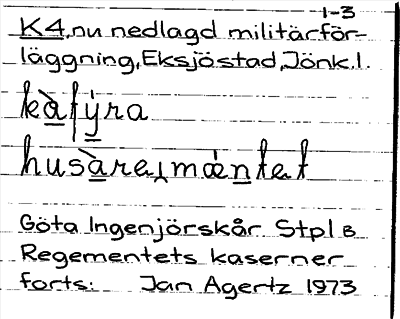 1-3
K4, nu nedlagd militärför-
läggning, Eksjö stad, Jönk.l.
kàfýra
husàreˌmæntet
Göta Ingenjörskår Stpl B
Regementets kaserner
forts: Jan Agertz 1973